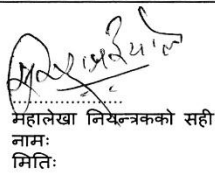 ....................
महालेखा नियन्त्रकको सही
नामः
मितिः